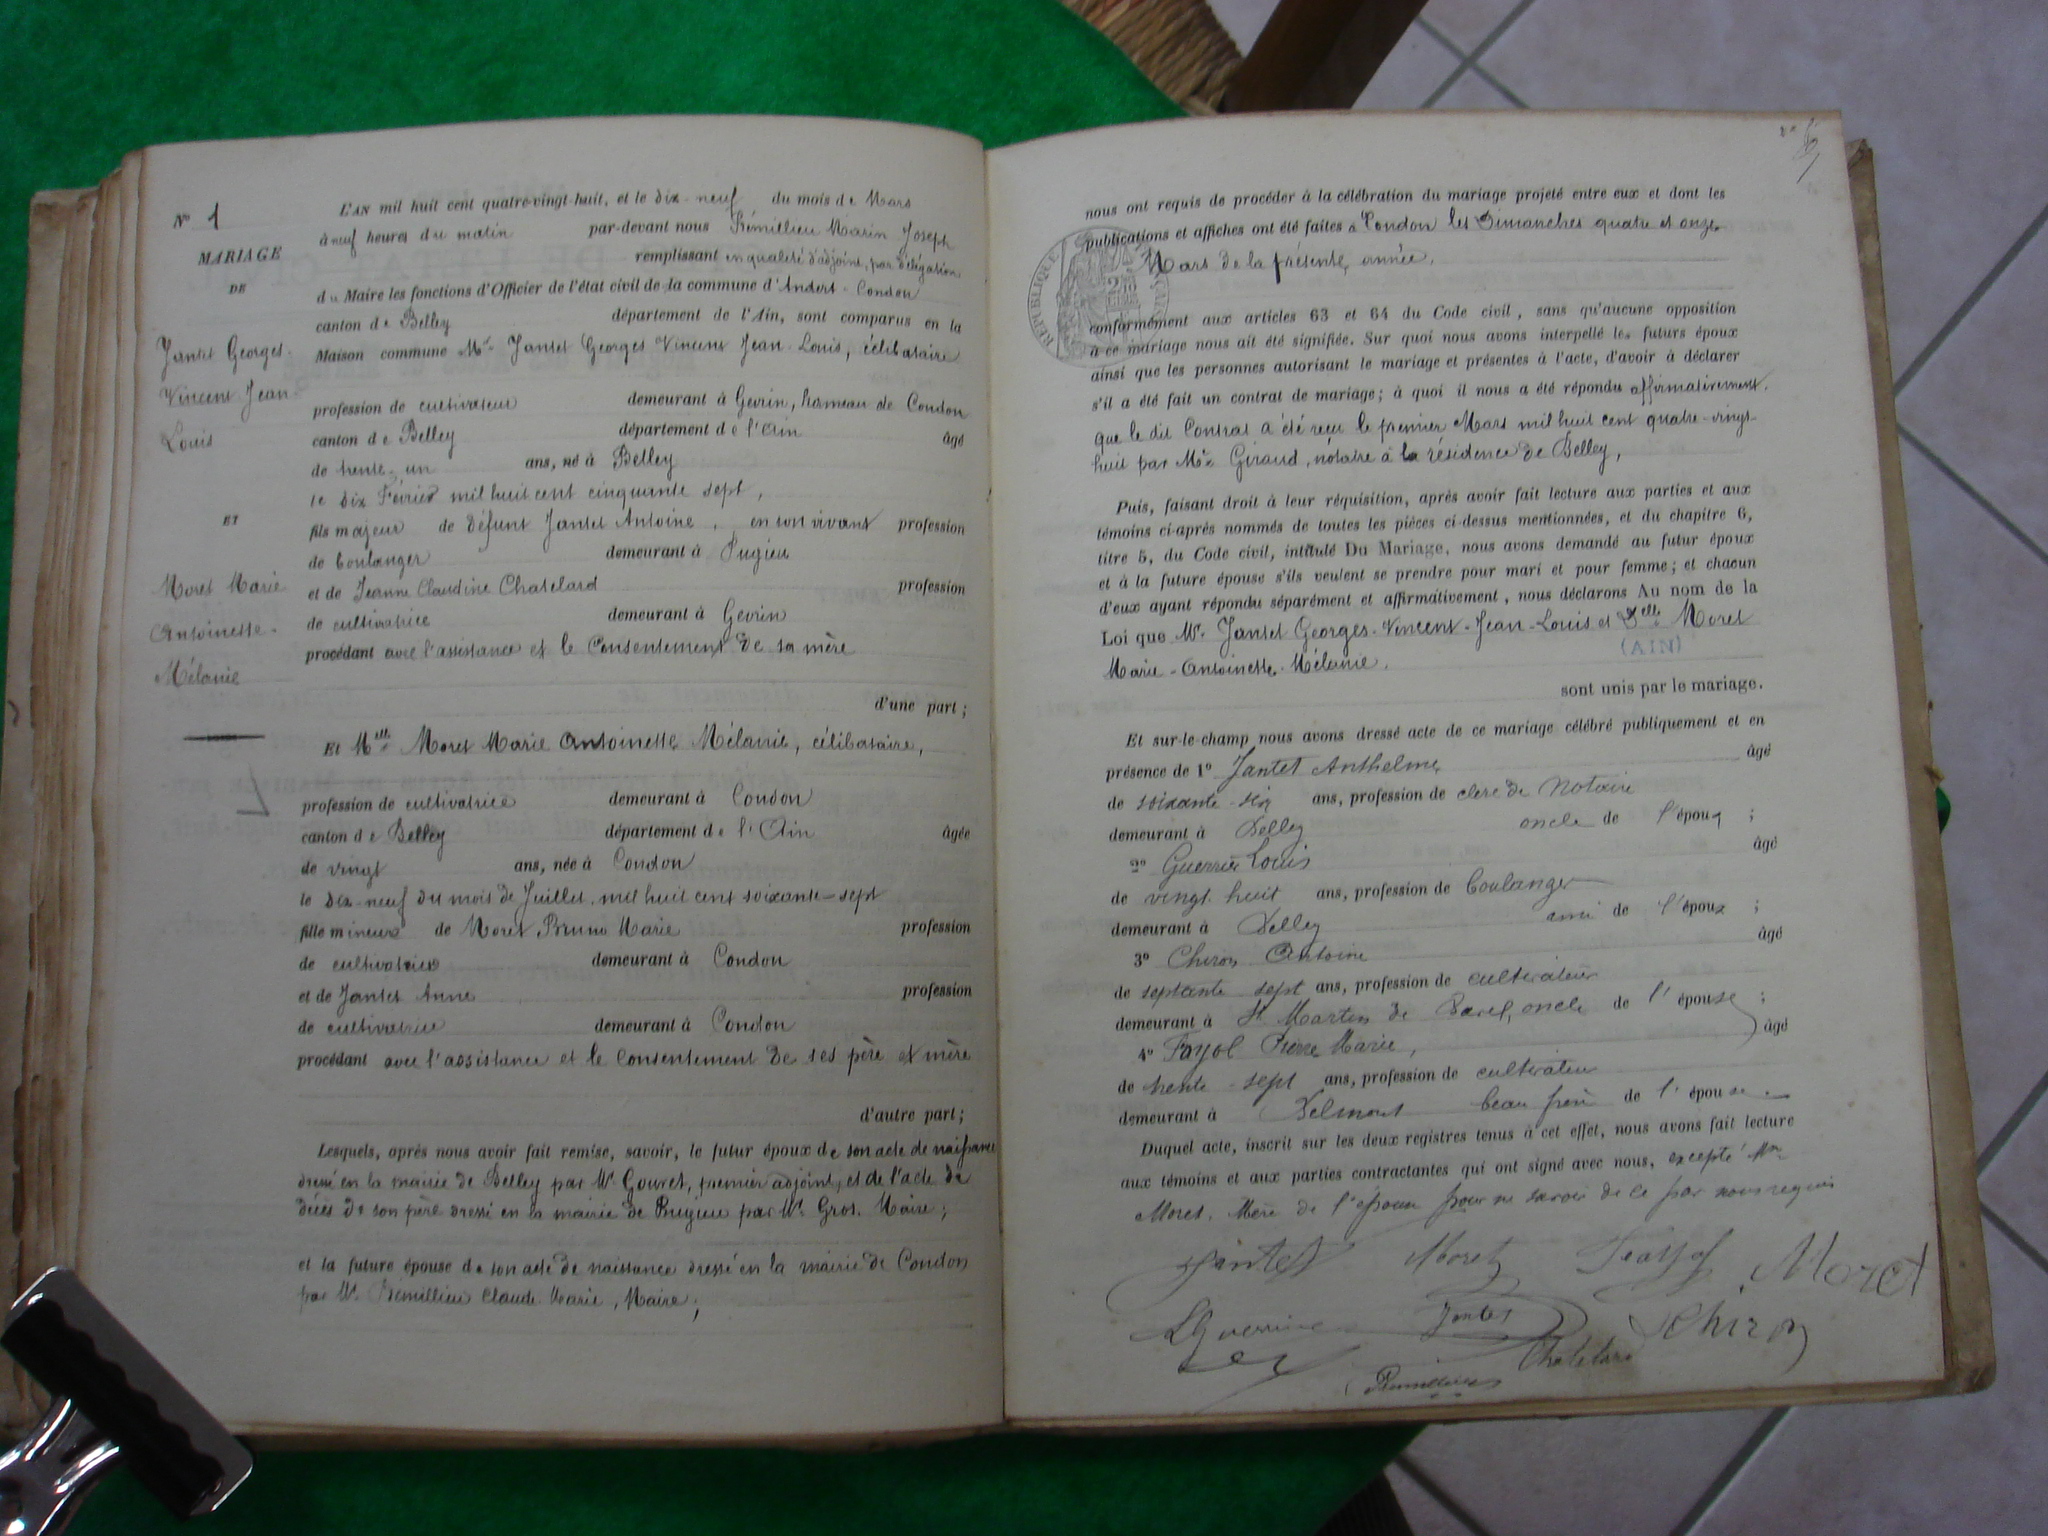 N° 1
MARIAGE
DE
Jantet Georges-
Vincent Jean-
Louis
ET
Moret Marie
Antoinette-
Mélanie
L'AN mil huit cent quatre-vingt-huit, et le dix-neuf du mois de Mars
à neuf heures du matin par-devant nous Rémillieu Marin Joseph
remplissant en qualité d'adjoint, par délégation
du Maire les fonctions d'Officier de l'état civil de la commune d'Andert-Condon
canton de Belley département de l'Ain, sont comparus en la
Maison commune Mr Jantet Georges Vincent Jean-Louis, célibataire
profession de cultivateur demeurant à Gevrin, hameau de Condon
canton de Belley département de l'Ain âgé
de trente-un ans, né à Belley
le dix Février mil huit cent cinquante sept,
fils majeur de défunt Jantet Antoine, en son vivant profession
de boulanger demeurant à Pugieu
et de Jeanne Claudine Chatelard profession
de cultivatrice demeurant à Gevrin
procédant avec l'assistance et le Consentement de sa mère
d'une part ;
Et Melle Moret Marie Antoinette Mélanie, célibataire,
profession de cultivatrice demeurant à Condon
canton de Belley département de l'Ain âgée
de vingt ans, née à Condon
le dix-neuf du mois de Juillet mil huit cent soixante-sept
fille mineure de Moret Bruno Marie profession
de cultivateur demeurant à Condon
et de Jantet Anne profession
de cultivatrice demeurant à Condon
procédant avec l'assistance et le Consentement de ses père et mère
d'autre part ;
Lesquels, après nous avoir fait remise, savoir, le futur époux de son acte de naissance
dressé en la mairie de Belley par Mr Gouret, premier adjoint, et de l'acte de
décès de son père dressé en la mairie de Pugieu par Mr Gros, Maire ;
et la future épouse de son acte de naissance dressé en la mairie de Condon
par Mr Rémillieu Claude Marie, Maire ;
nous ont requis de procéder à la célébration du mariage projeté entre eux et dont les
publications et affiches ont été faites à Condon les Dimanches quatre et onze
Mars de la présente année,
conformément aux articles 63 et 64 du Code civil, sans qu'aucune opposition
à ce mariage nous ait été signifiée. Sur quoi nous avons interpellé les futurs époux
ainsi que les personnes autorisant le mariage et présentes à l'acte, d'avoir à déclarer
s'il a été fait un contrat de mariage ; à quoi il nous a été répondu affirmativement.
que le dit Contrat a été reçu le premier Mars mil huit cent quatre-vingt-
huit par Me Giraud, notaire à la résidence de Belley,
Puis, faisant droit à leur réquisition, après avoir fait lecture aux parties et aux
témoins ci-après nommés de toutes les pièces ci-dessus mentionnées, et du chapitre 6,
titre 5, du Code civil, intitulé Du Mariage, nous avons demandé au futur époux
et à la future épouse s'ils veulent se prendre pour mari et pour femme ; et chacun
d'eux ayant répondu séparément et affirmativement, nous déclarons Au nom de la
Loi que Mr Jantet Georges-Vincent-Jean-Louis et Delle Moret
(AIN)
Marie-Antoinette-Mélanie,
sont unis par le mariage.
Et sur-le-champ nous avons dressé acte de ce mariage célébré publiquement et en
présence de 1° Jantet Anthelme âgé
de soixante-six ans, profession de clerc de Notaire
demeurant à Belley oncle de l'époux ;
2° Guerrier Louis âgé
de vingt huit ans, profession de boulanger
demeurant à Belley ami de l'époux ;
3° Chiron Antoine âgé
de septante sept ans, profession de cultivateur
demeurant à St Martin de Bavel, oncle de l'épouse ;
4° Fayol Pierre Marie, âgé
de trente-sept ans, profession de cultivateur
demeurant à Belmont beau frère de l'épouse.
Duquel acte, inscrit sur les deux registres tenus à cet effet, nous avons fait lecture
aux témoins et aux parties contractantes qui ont signé avec nous, excepté Mme
Moret, Mère de l'épouse pour ne savoir de ce par nous requis
Jantet Moret Moret
LGuerrier Jantet Chiron
Chatelard
Rémillieu